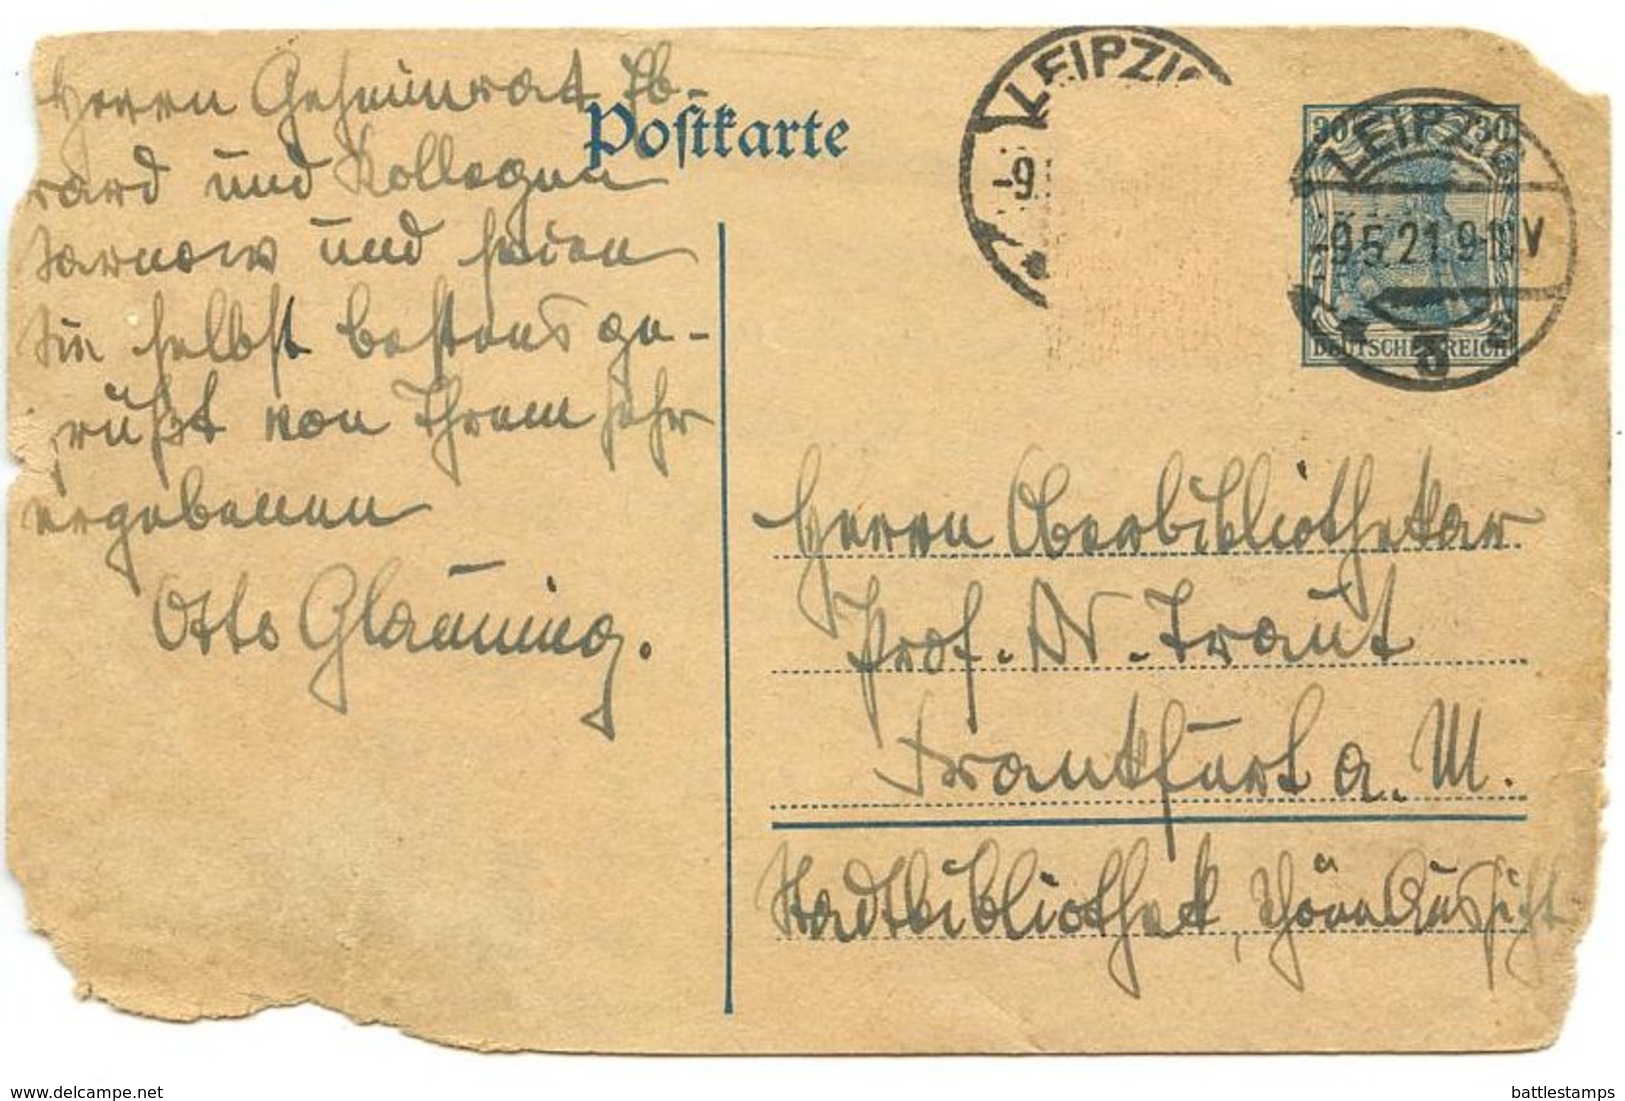 Herrn Geheimrat Eb-
rard und Kollegen
Sarnow und seien
Sie selbst bestens ge-
grüßt von Ihrem sehr
ergebenen
Otto Glauning.
Postkarte
LEIPZIG
-9.
30 30
LEIPZIG
-9.5.21.9-10V
DEUTSCHES REICH
Herrn Oberbibliothekar
Prof. Dr. Traut
Frankfurt a. M.
Stadtbibliothek, Schöne Aussicht
delcampe.net
battlestamps